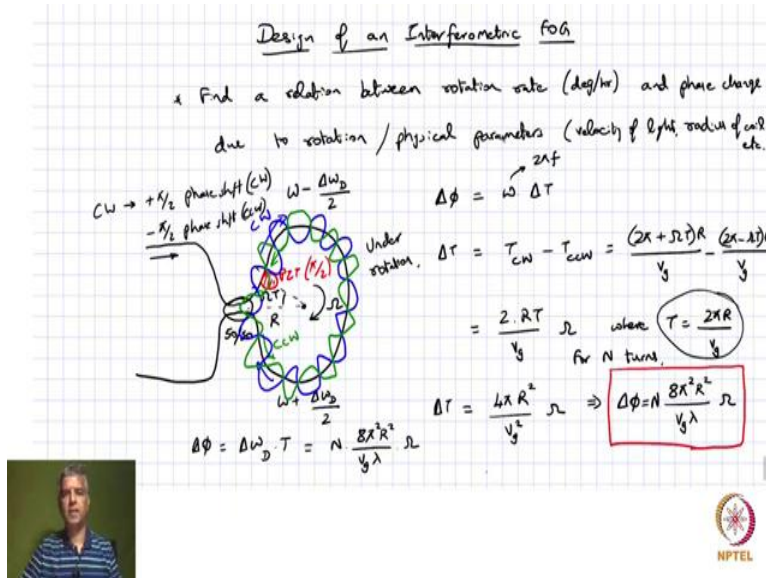 Design of an Interferometric FOG
* Find a relation between rotation rate (deg/hr) and phase change
due to rotation / physical parameters (velocity of light, radius of coil etc.
CW → +π/2 phase shift (CW)
-π/2 phase shift (CCW)
ω - Δω_D/2
CW
Under rotation,
PZT (π/2)
ΩT
R
Ω
50/50
CCW
ω + Δω_D/2
2πf
Δφ = ω · ΔT
ΔT = T_CW - T_CCW = (2π + ΩT)R/v_g - (2π - ΩT)R/v_g
= 2·RT/v_g Ω where T = 2πR/v_g
For N turns,
ΔT = 4πR²/v_g² Ω ⇒ Δφ = N 8π²R²/v_gλ Ω
Δφ = Δω_D · T = N · 8π²R²/v_gλ · Ω
NPTEL